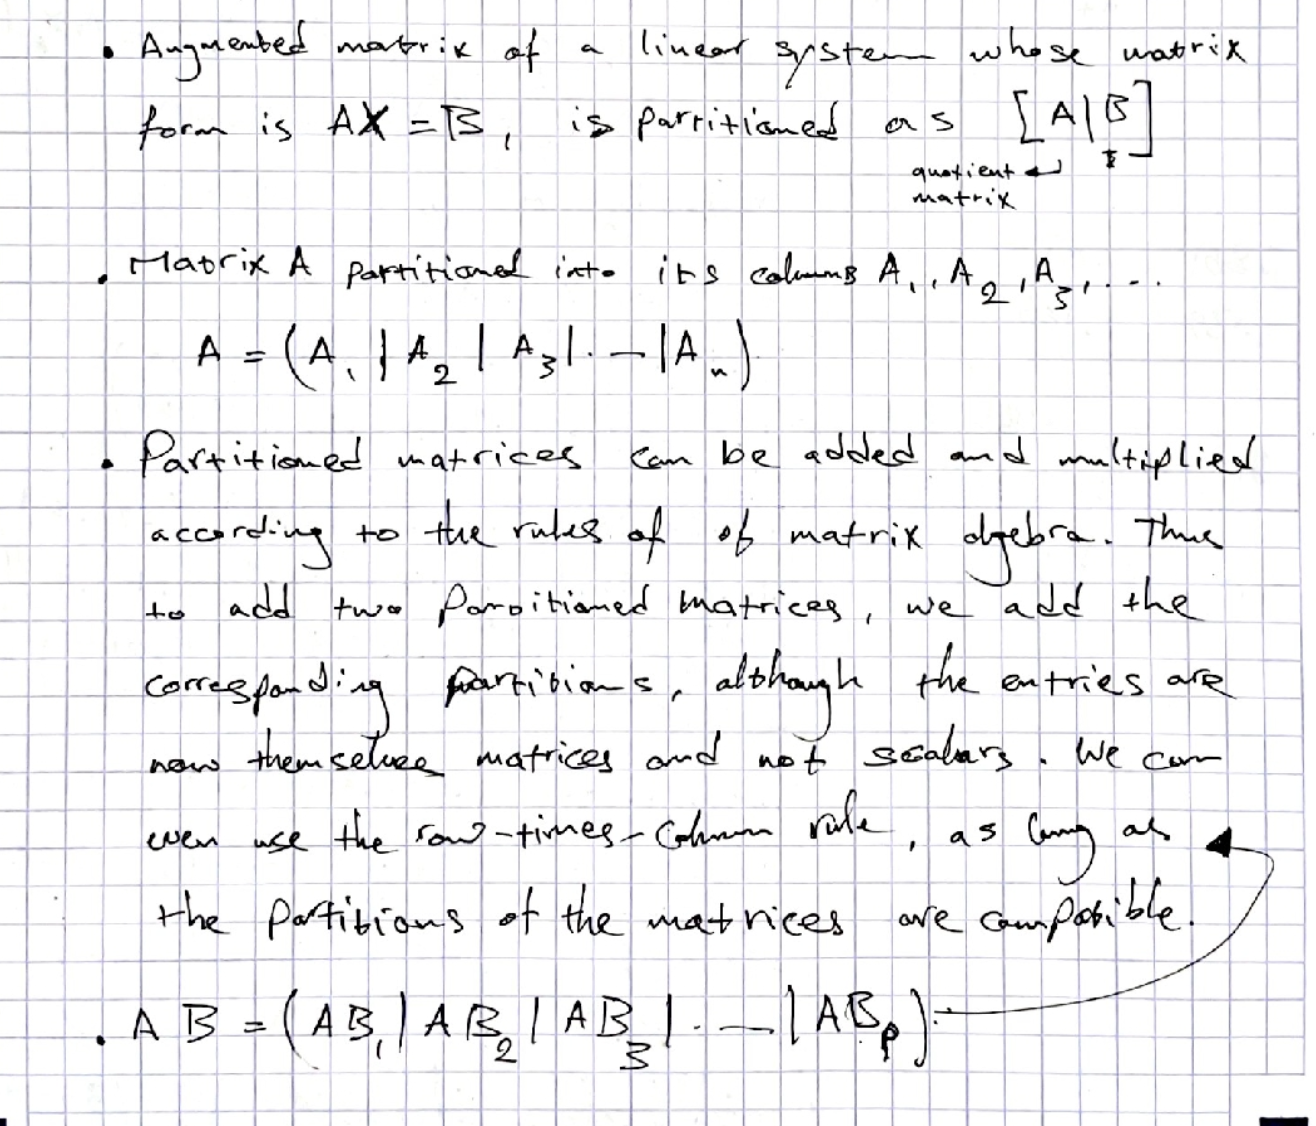 • Augmented matrix of a linear system whose matrix
form is AX = B, is partitioned as [A|B]
quotient ↵
matrix
• Matrix A partitioned into its columns A₁, A₂, A₃, ...
A = (A₁ | A₂ | A₃ | . — | Aₙ)
• Partitioned matrices can be added and multiplied
according to the rules of of matrix algebra. Thus
to add two partitioned matrices, we add the
corresponding partitions, although the entries are
now themselves matrices and not scalars. We can
even use the row-times-column rule, as long as
the partitions of the matrices are compatible.
• AB = (AB₁ | AB₂ | AB₃ | . — | ABₚ)